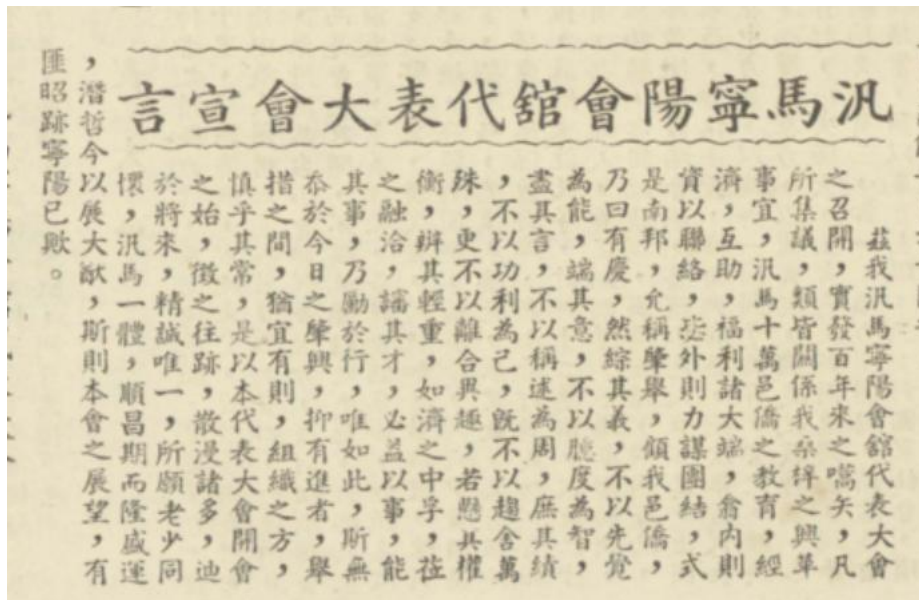 汎馬寧陽會舘代表大會宣言
茲我汎馬寧陽會舘代表大會
之召開，實發百年來之嚆矢，凡
所集議，類皆關係我桑梓之興革
事宜，汎馬十萬邑僑之教育，經
濟，互助，福利諸大端，翕內則
資以聯絡，迩外則力謀團結，式
是南邦，允稱肇舉，顧我邑僑，
乃曰有慶，然綜其義，不以先覺
為能，端其意，不以臆度為智，
盡其言，不以稱述為周，庶其績
，不以功利為己，旣不以趨舍萬
殊，更不以離合異趣，若懸其權
衡，辨其輕重，如濟之中孚，莅
之融洽，論其才，必益以事，能
其事，乃勵於行，唯如此，斯無
忝於今日之肇興，抑有進者，舉
措之間，猶宜有則，組織之方，
慎乎其常，是以本代表大會開會
之始，徵之往跡，散漫諸多，迪
於將來，精誠唯一，所願老少同
懷，汎馬一體，順昌期而隆盛運
，潛哲今以展大猷，斯則本會之展望，有
匪昭跡寧陽已歟。